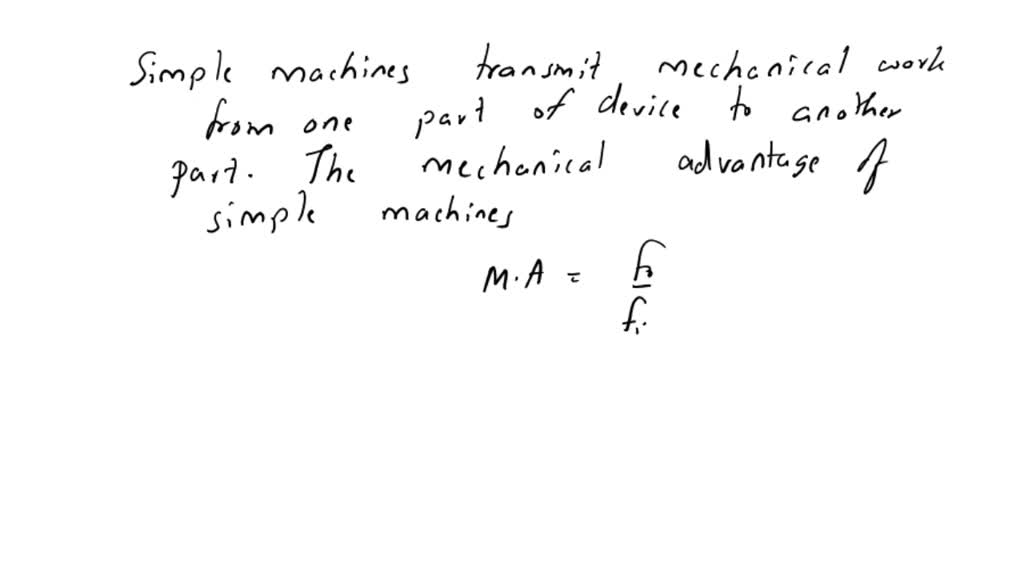 Simple machines transmit mechanical work
from one part of device to another
part. The mechanical advantage of
simple machines
M.A = fo
fi